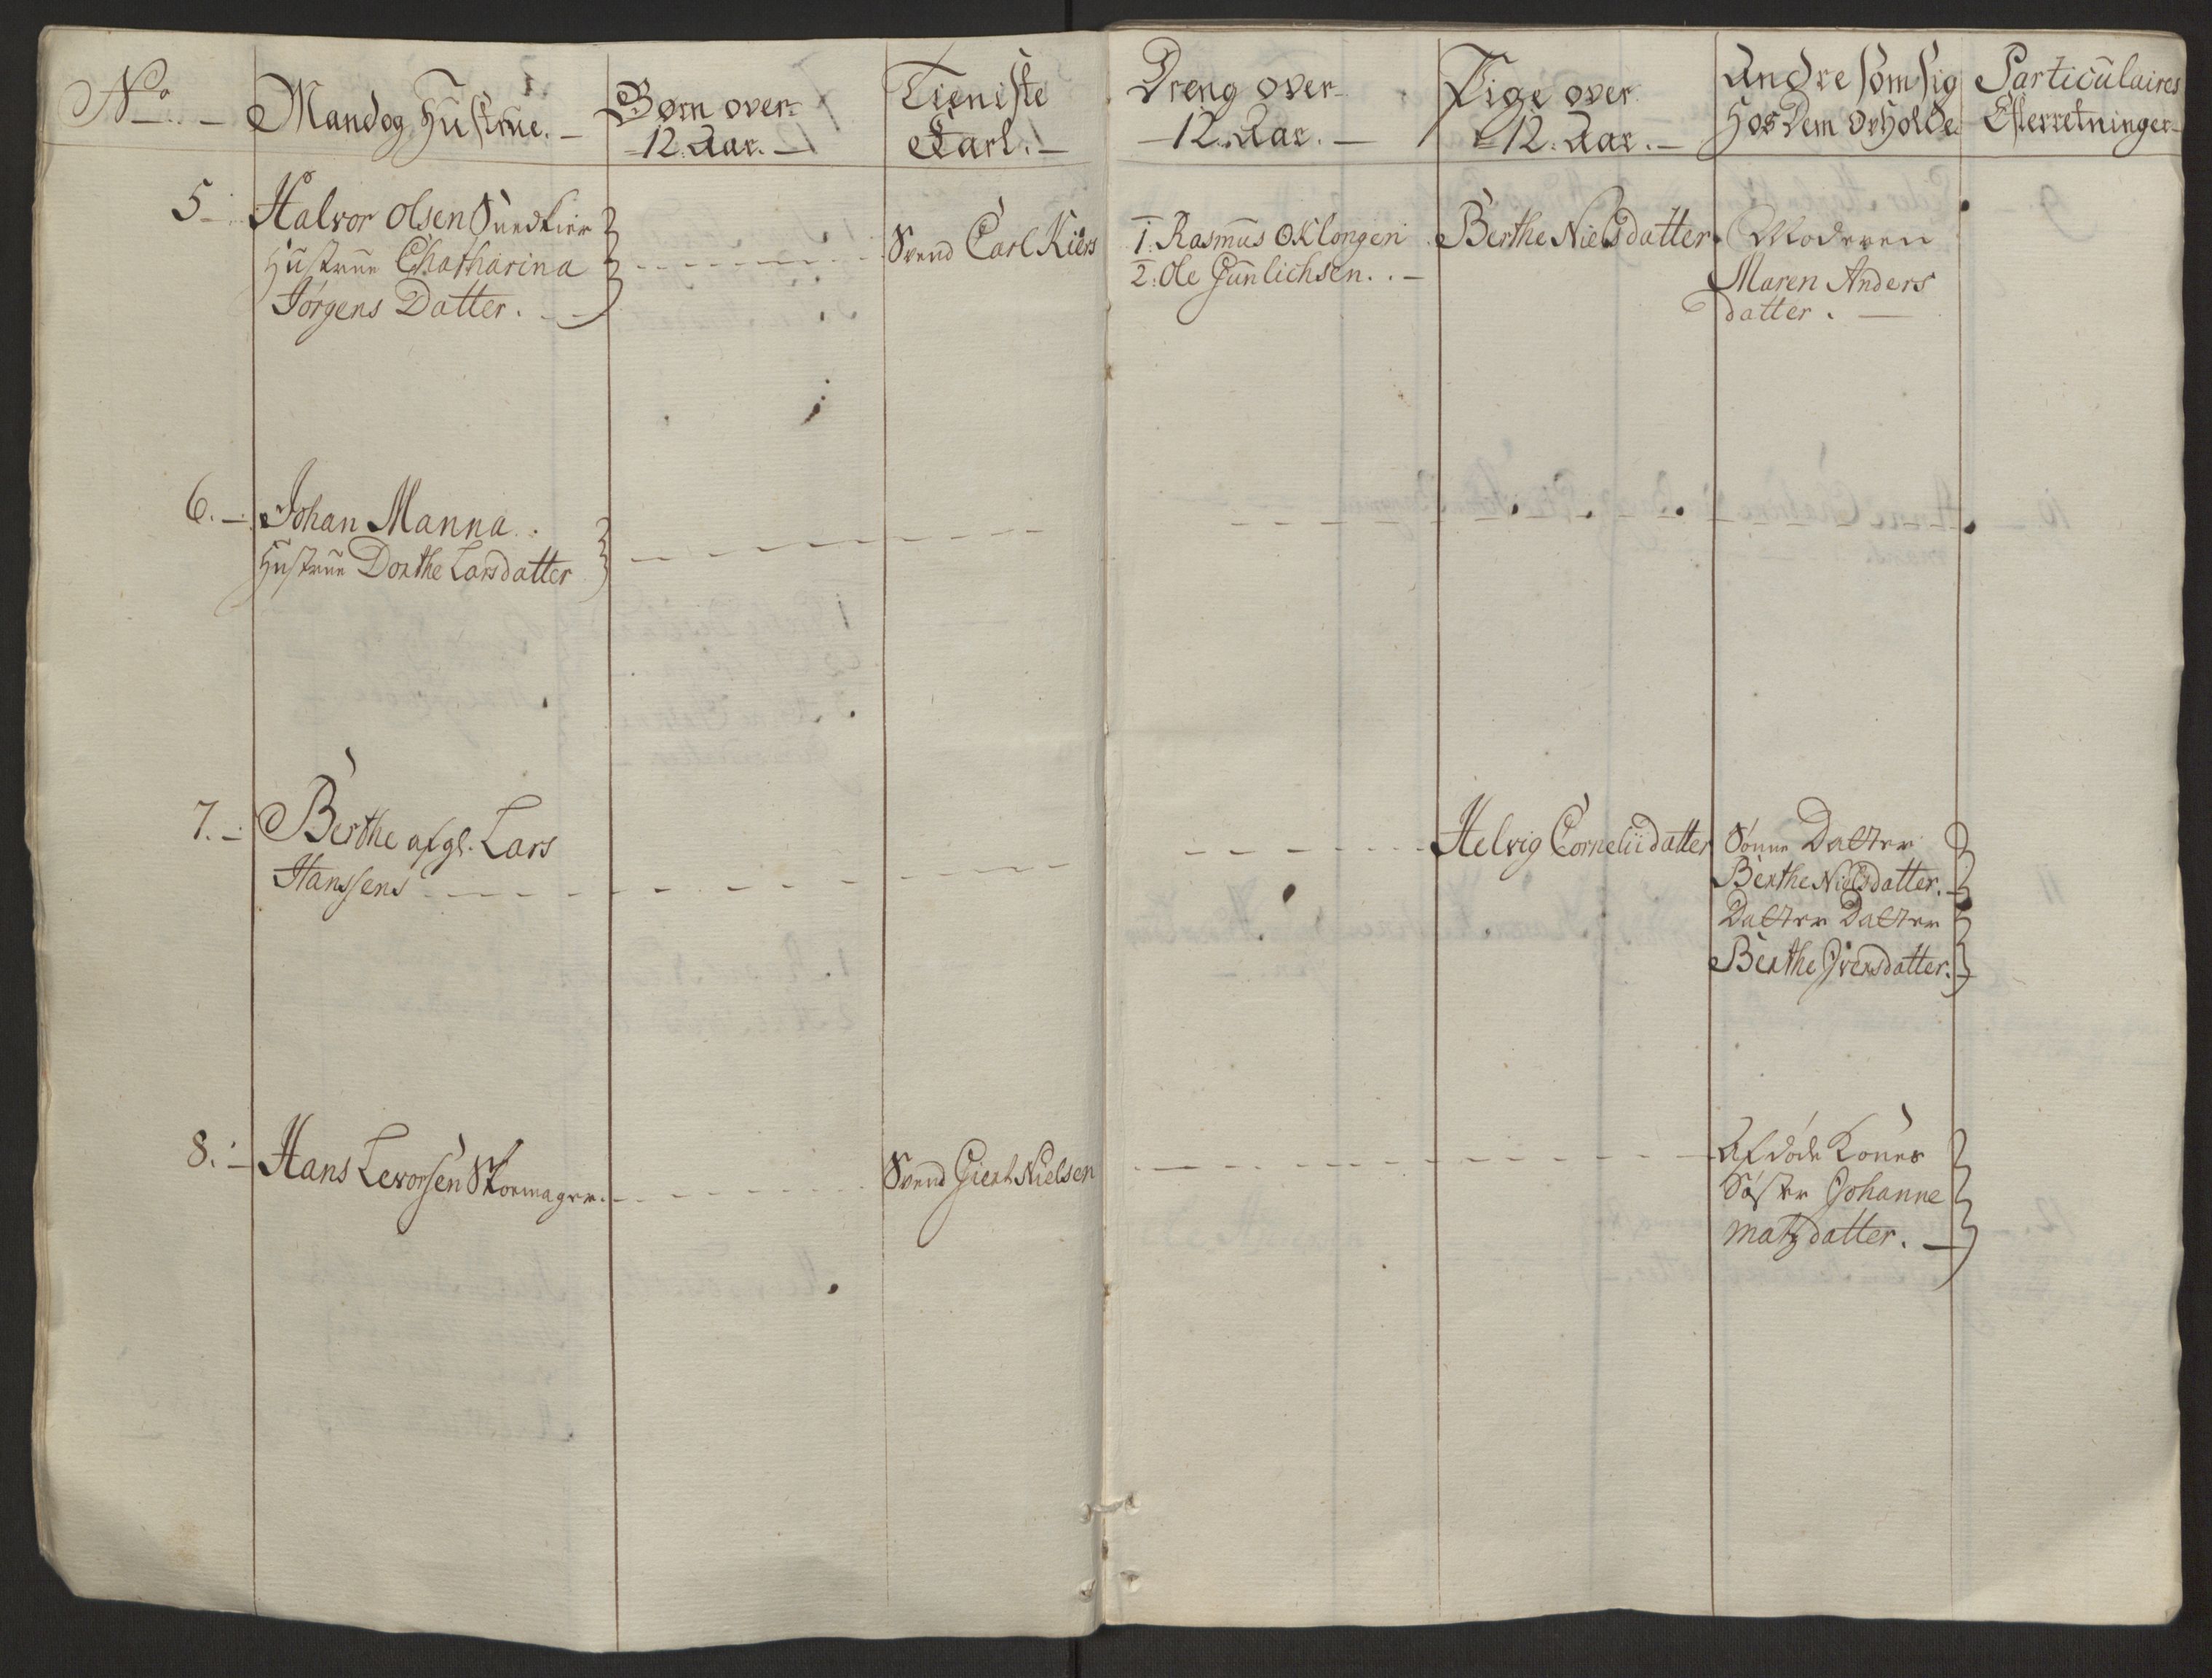 No. Mand og Hustrue. Børn over 12. Aar. Tieniste Carl. Dreng over 12. Aar. Pige over 12. Aar. Andre som sig Hos Dem opholde Particulaires Efterretninger
5. Halvor Olsen Snedkier Svend Carl Kiers 1. Rasmus OKlongen Berthe Nielsdatter. Moderen
Hustrue Chatharina 2. Ole Gunlichsen. Maren Anders
Jørgens Datter. datter.
6. Johan Manna.
Hustrue Dorthe Larsdatter
7. Berthe afgl. Lars Helvig Corneliidatter Sønne Datter
Hanssens Berthe Nielsdatter.
Datter Datter
Berthe Iversdatter.
8. Hans Levorsen Skoemager. Svend Giert Nielsen Afdøde Kones
Søster Johanne
Matzdatter.